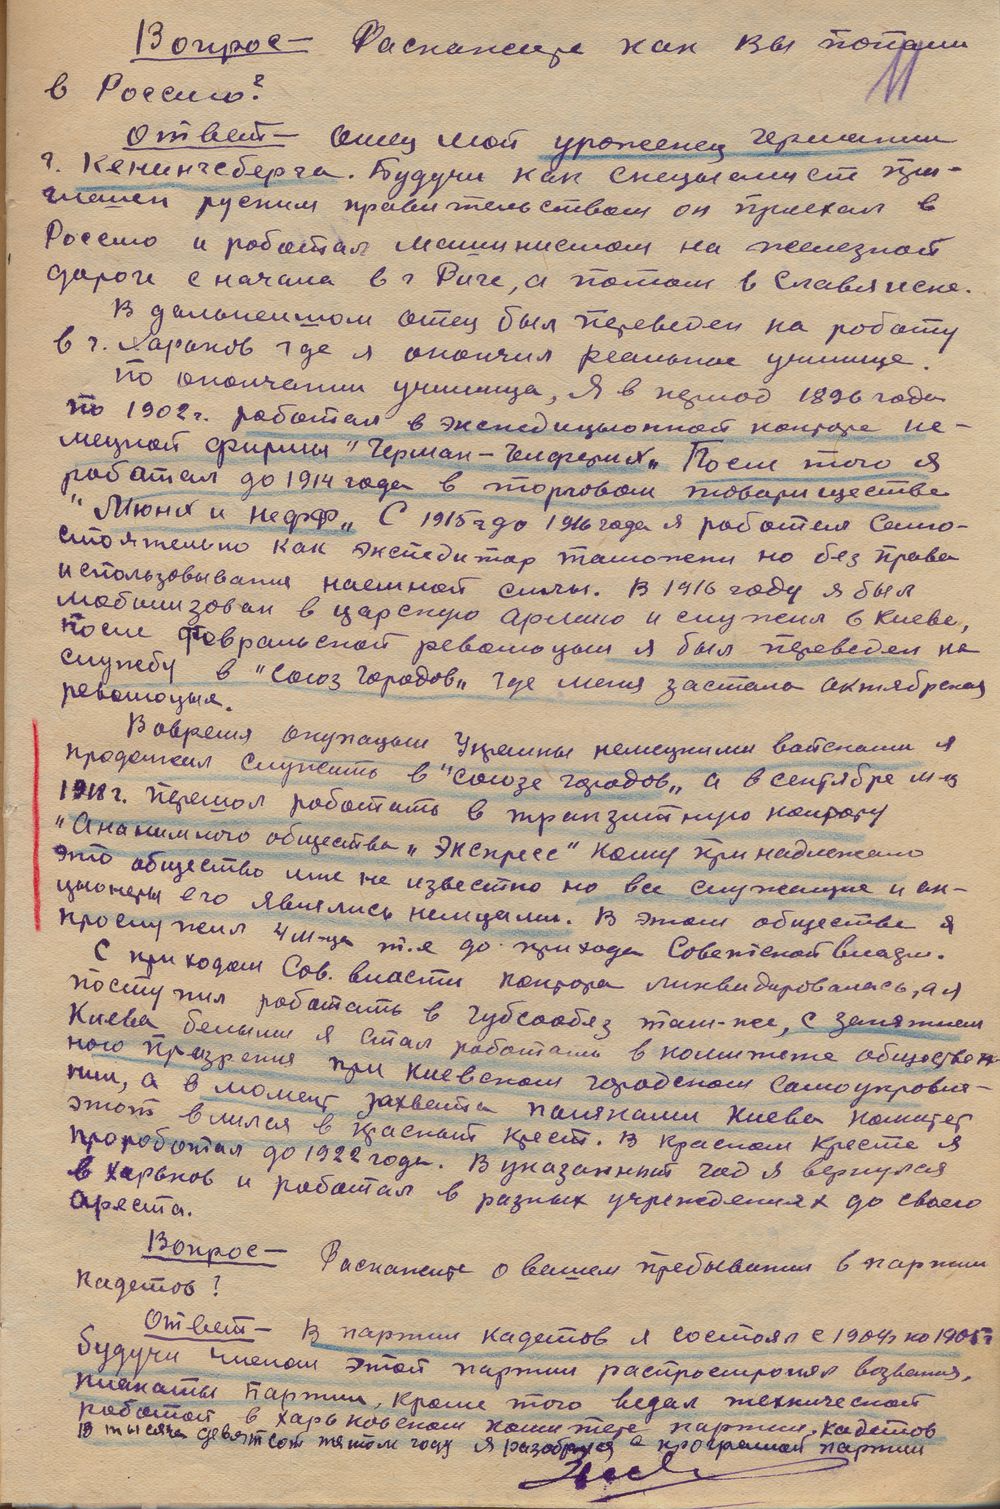 Вопрос – Раскажите как Вы попали
11
в Россию?
Ответ – Отец мой уроженец германии
г. Кенингсберга. Будучи как специалист при-
глашен руским правительством он приехал в
Россию и работал машинистом на железной
дороге сначала в г Риге, а потом в Славянске.
В дальнейшом отец был переведен на работу
в г. Харьков где я окончил реальное училище.
По окончании училища, Я в период 1896 года
по 1902 г. работал в экспедиционной конторе не-
мецкой фирмы "Герман- После того я
работал до 1914 года в торговом товариществе
"Мюнх и Нефф„ С 1915г до 1916 года я работал само-
стоятельно как экспедитор таможени но без права
использовывания наемной силы. В 1916 году я был
мобилизован в царскую армию и служил в Киеве,
после февральской революции я был переведен на
службу в "Союз городов„ где меня застала октябрская
революция.
Вовремя окупации Украины немецкими войсками я
продолжал служить в "Союзе городов„ а в сентябре м-ц
1918 г. перешол работать в транзитную контору
"Ананимного общества„ "Экспресс" кому принадлежало
это общество мне не известно но все служащие и ак-
ционеры его являлись немцами. В этом обществе я
прослужил 4 м-ца т.е до прихода Советской власти.
С приходом Сов. власти контора ликвидировалась, а я
поступил работать в Губсообяз там-же, с занятием
Киева белыми я стал работать в комитете обществен-
ного призрения при Киевском городском самоуправле-
нии, а в момент захвата поляками Киева комитет
этот влился в красный крест. В красном Кресте я
проработал до 1922 года. В указанный год я вернулся
в Харьков и работал в разных учреждениях до своего
ареста.
Вопрос – Раскажите о вашем пребывании в партии
кадетов?
Ответ – В партии кадетов я состоял с 1904г по 1905г
будучи членом этой партии распространял воззвания,
плакаты партии, кроме того ведал технической
работой в Харьковском комитете партии кадетов
В тысяча девятсот пятом году я разобрался с програмой партии